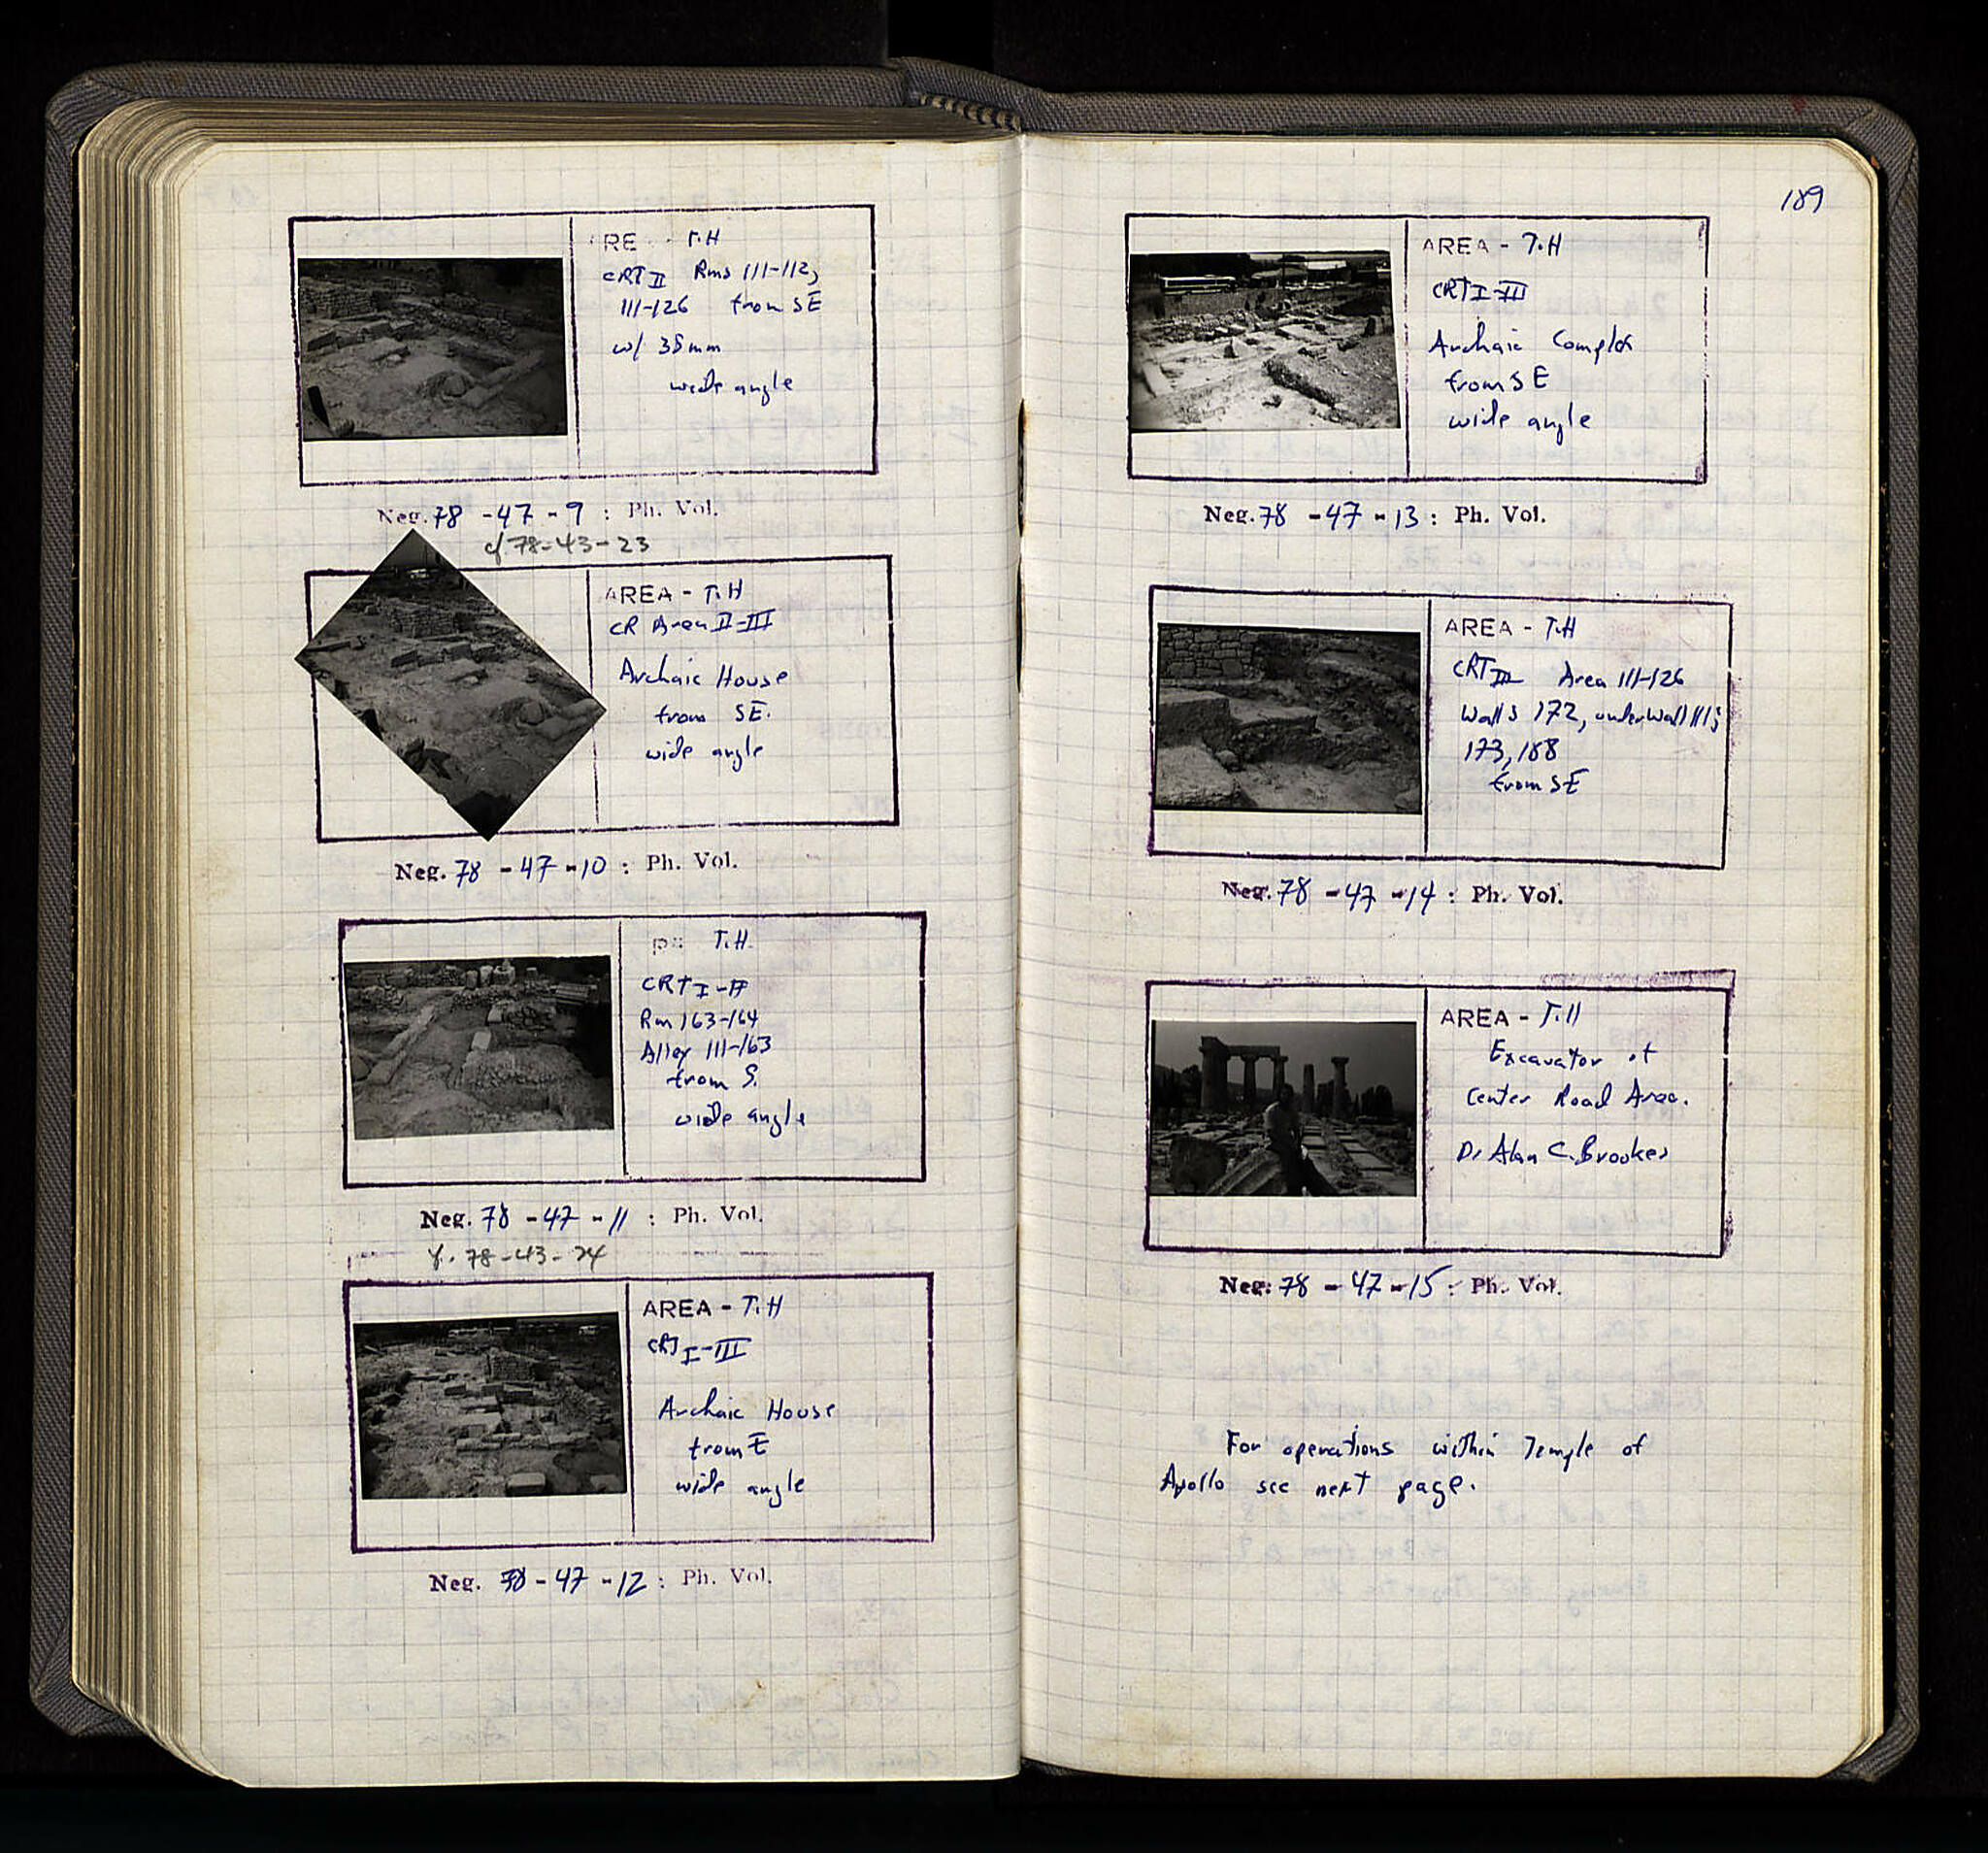 RE T.H
CRT II Rms 111-112,
111-126 from SE
w/ 38mm
wide angle
Neg. 78 - 47 - 9 : Ph. Vol.
cf 78-43-23
AREA - T.H
CR Area II-III
Archaic House
from SE.
wide angle
Neg. 78 - 47 - 10 : Ph. Vol.
T.H.
CRT I-II
Rm 163-164
Alley 111-163
from S.
wide angle
Neg. 78 - 47 - 11 : Ph. Vol.
cf. 78-43-24
AREA - T.H
CRT I-III
Archaic House
from E
wide angle
Neg. 78 - 47 - 12 : Ph. Vol.
189
AREA - T.H
CRT I-III
Archaic Complex
from SE
wide angle
Neg. 78 - 47 - 13 : Ph. Vol.
AREA - T.H
CRT III Area 111-126
Walls 172, under Wall 111;
173, 188
from SE
Neg. 78 - 47 - 14 : Ph. Vol.
AREA - T.H
Excavator of
Center Road Area.
Dr Alan C. Brookes
Neg. 78 - 47 - 15 : Ph. Vol.
For operations within Temple of
Apollo see next page.